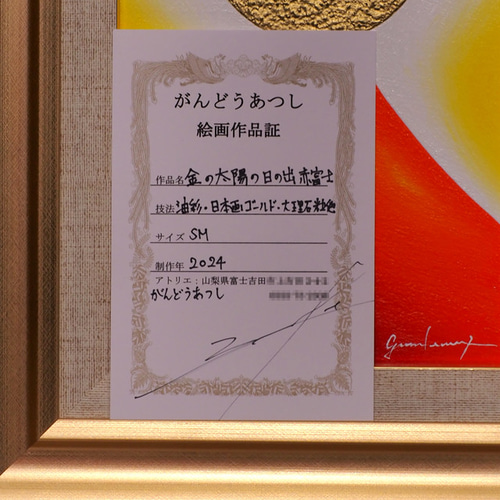 がんどうあつし
絵画作品証
作品名 金の太陽の日の出赤富士
技法 油彩・日本画ゴールド・大理石粒他
サイズ SM
制作年 2024
アトリエ:山梨県富士吉田
がんどうあつし